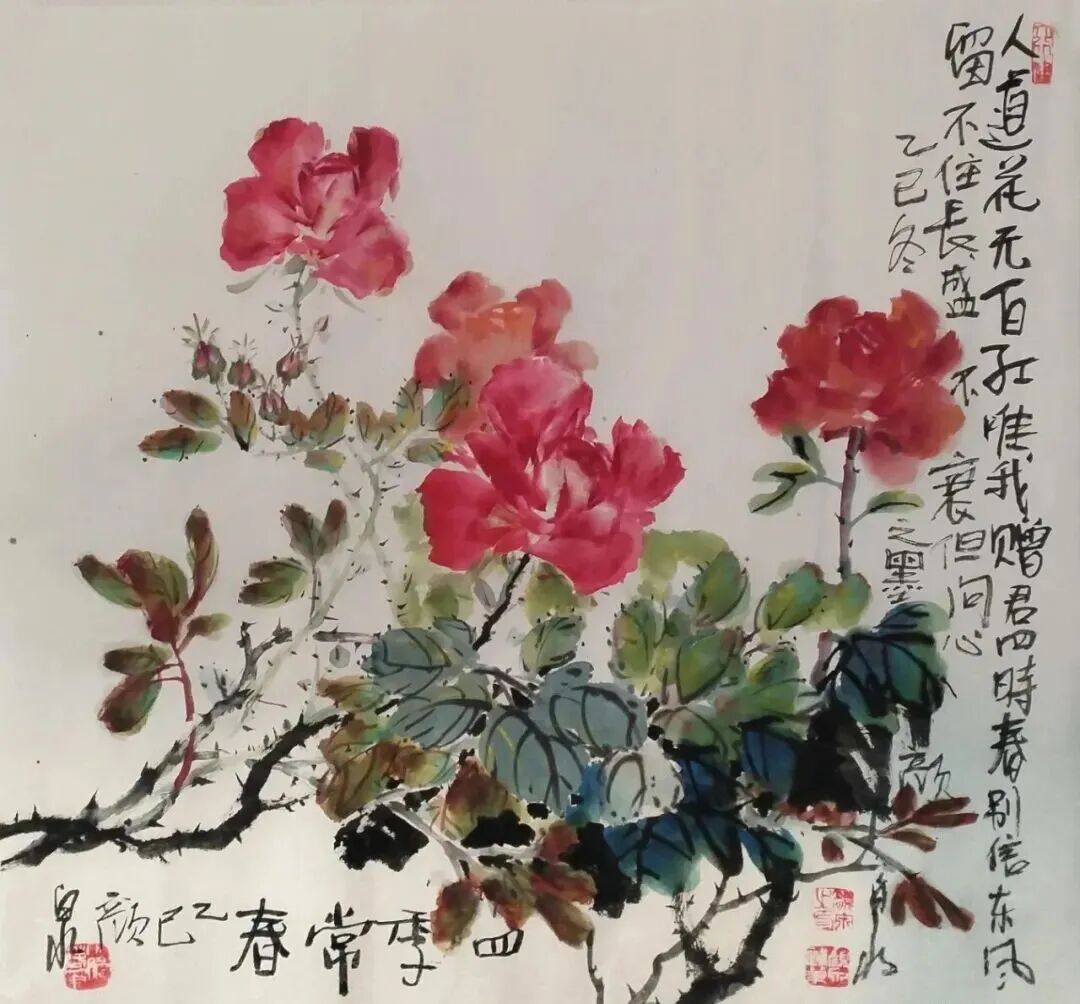 人道花无百红唯我赠君四時春别信东风
留不住長盛不衰但问心
乙巳冬之墨颜泉
四季常春乙巳颜泉